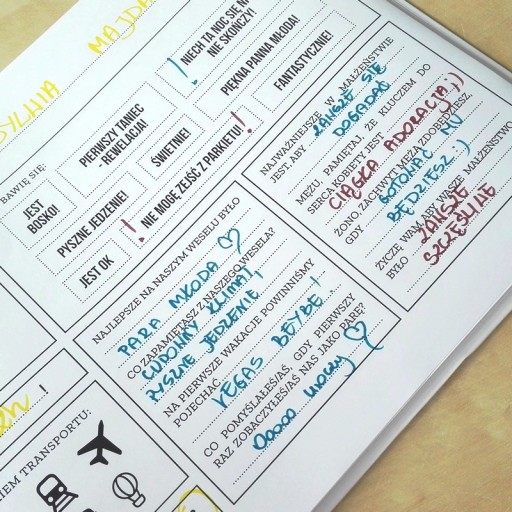 SYLWIA MAJDA
BAWIĘ SIĘ:
JEST BOSKO!
PIERWSZY TANIEC
REWELACJA!
! NIECH TA NOC SIĘ NI
NIE SKOŃCZY!
PYSZNE JEDZENIE!
ŚWIETNIE!
PIĘKNA PANNA MŁODA!
JEST OK
! NIE MOGĘ ZEJŚĆ Z PARKIETU! !
FANTASTYCZNIE!
NAJLEPSZE NA NASZYM WESELU BYŁO
PARA MŁODA ♡
CO ZAPAMIĘTASZ Z NASZEGO WESELA?
CUDOWNY KLIMAT,
PYSZNE JEDZENIE
NA PIERWSZE WAKACJE POWINNIŚMY
POJECHAĆ VEGAS BEJBE!
CO POMYŚLAŁEŚ/AŚ, GDY PIERWSZY
RAZ ZOBACZYŁEŚ/AŚ NAS JAKO PARĘ?
NAJWAŻNIEJSZE W MAŁŻEŃSTWIE
JEST, ABY ZAWSZE SIĘ
DOGADAĆ
MĘŻU, PAMIĘTAJ, ŻE KLUCZEM DO
SERCA KOBIETY JEST
CIĄGŁA ADORACJA ;)
ŻONO, ZACHWYT MĘŻA ZDOBĘDZIESZ,
GDY GOTOWAĆ MU
BĘDZIESZ :)
ŻYCZĘ WAM, ABY WASZE MAŁŻEŃSTWO
BYŁO ZAWSZE
SZCZĘŚLIWE
IEM TRANSPORTU: